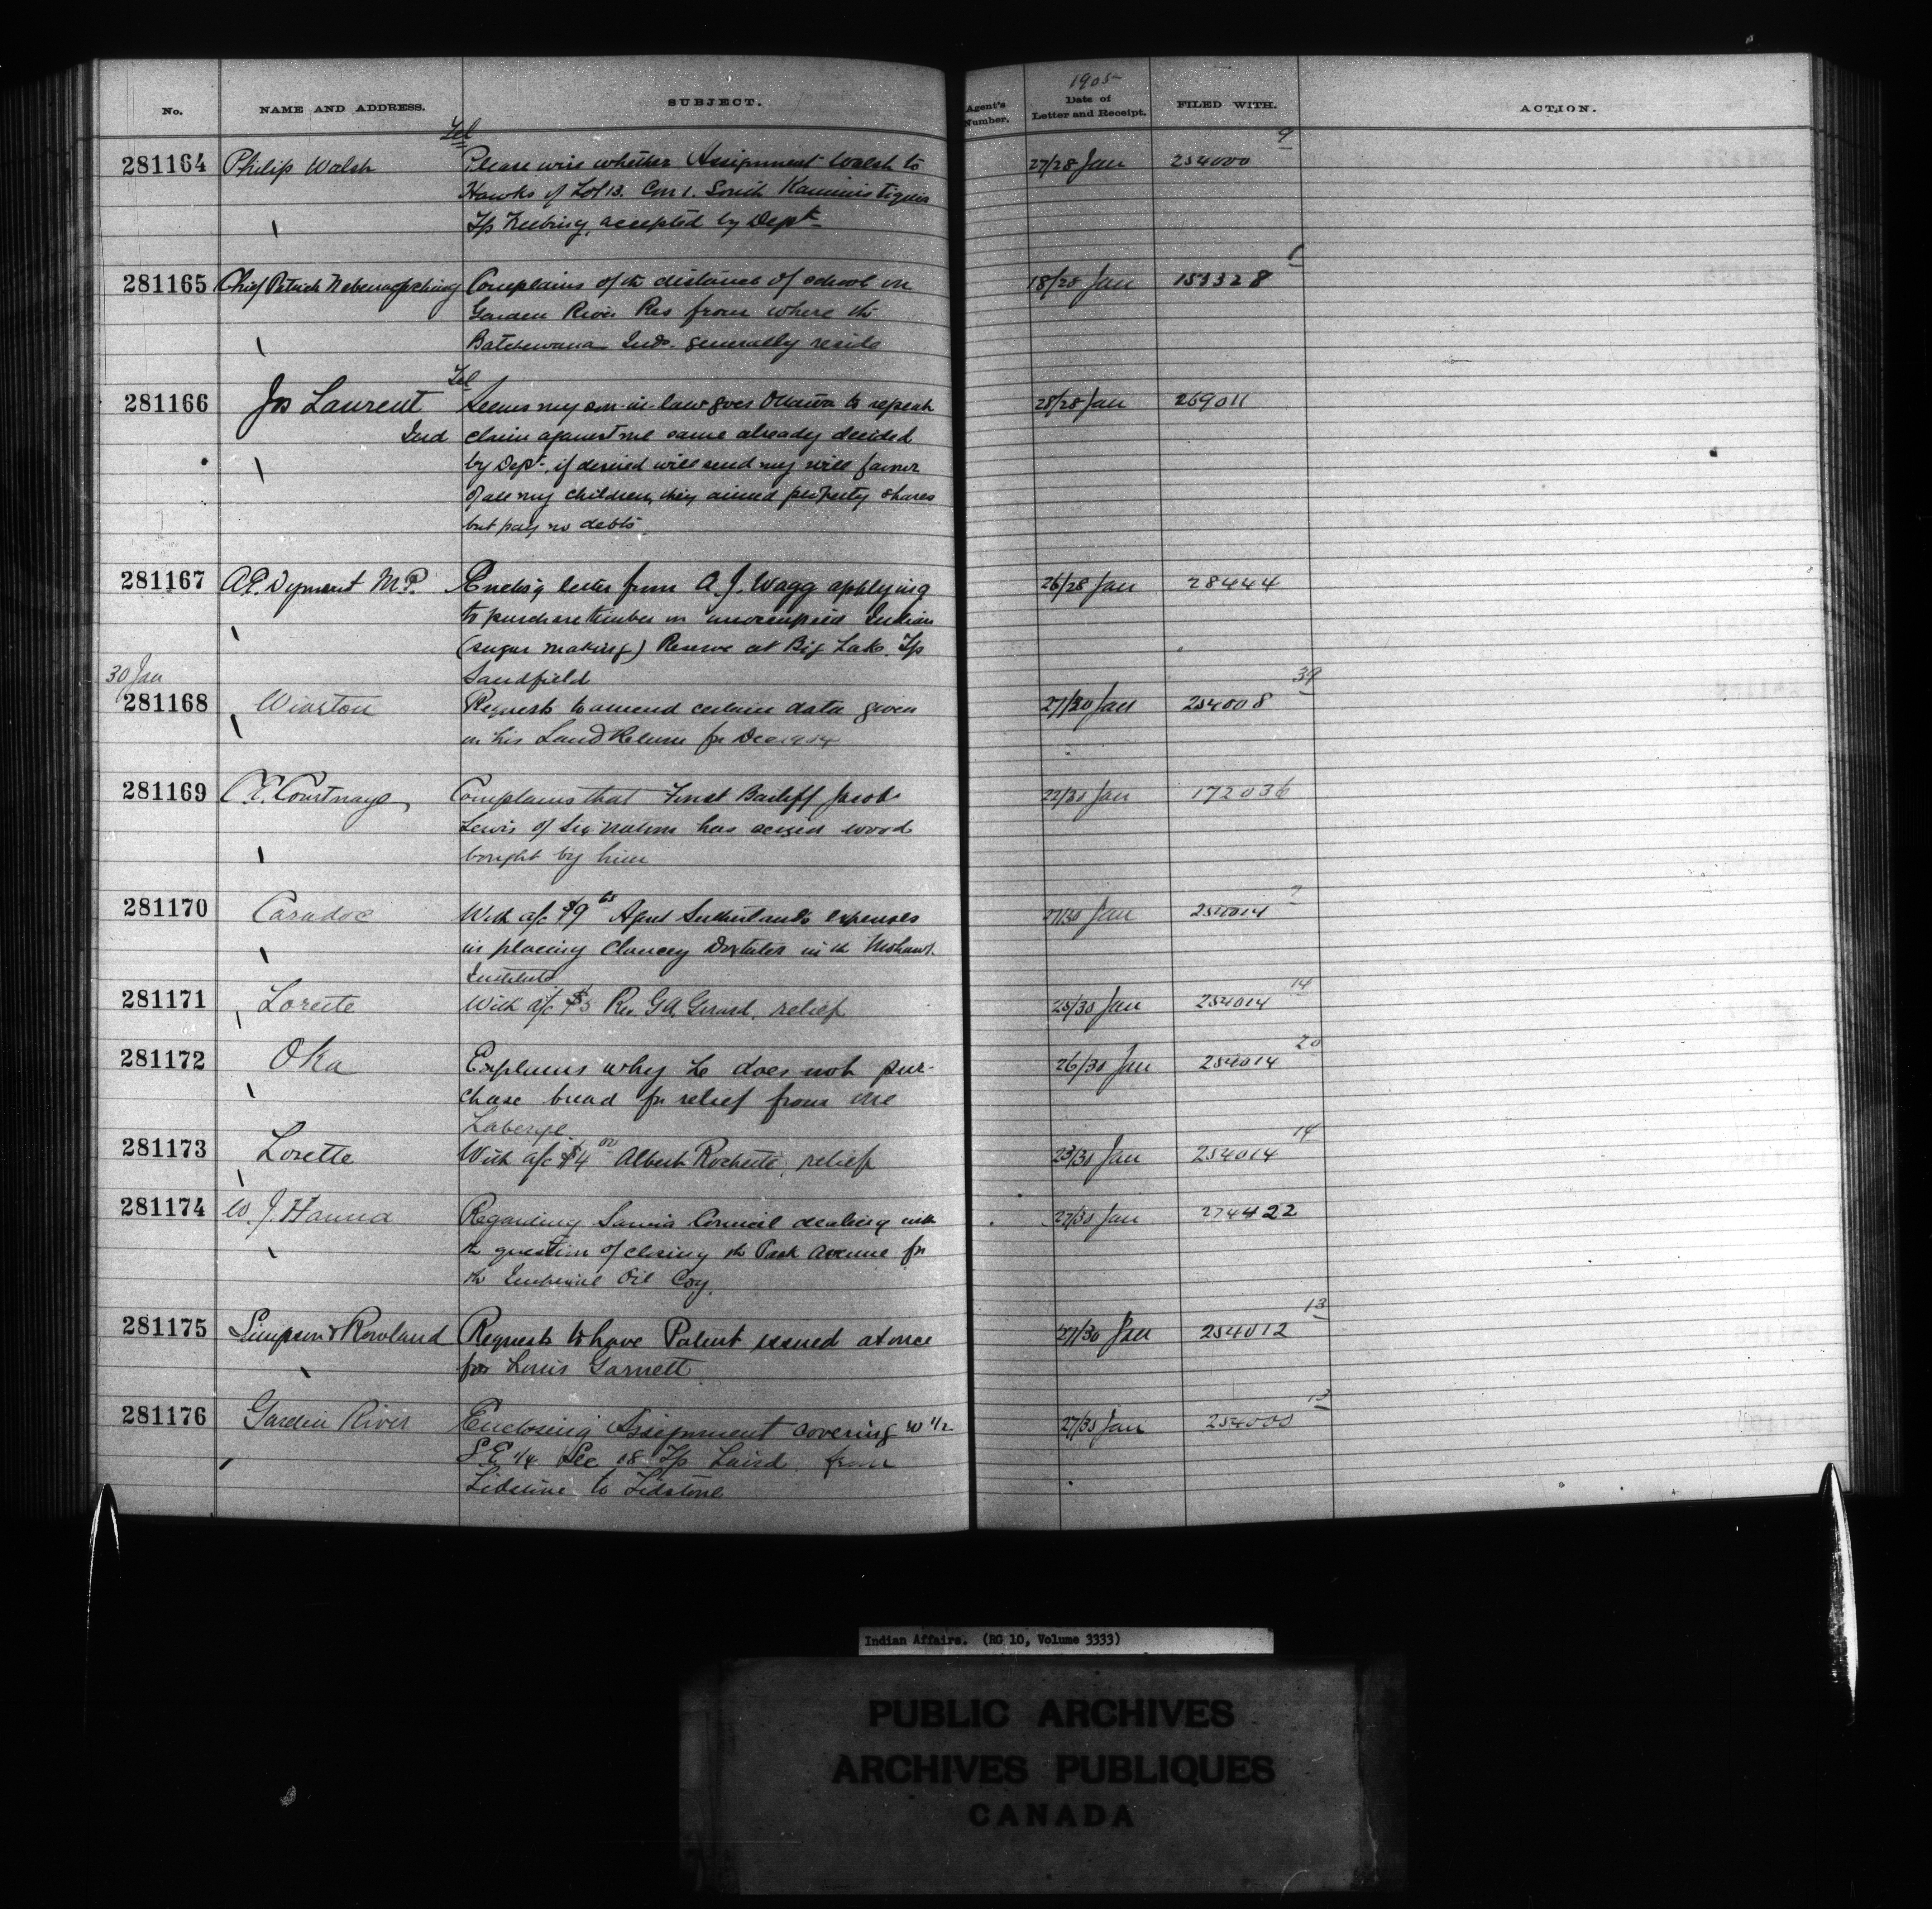 No. NAME AND ADDRESS. SUBJECT. Agent's Number. 1905 Date of Letter and Receipt. FILED WITH. ACTION.
Tel 9
281164 Philip Walsh Please wire whether Assignment Walsh to 27/28 Jan 254000
Hawks of Lot 13. Con 1. South Kaministiquia
Tp Neebing, accepted by Dept
281165 Chief Patrick Complains of th distance of school on 18/28 Jan 153328
Garden River Res from where th
Batchewana Inds. generally reside
Tel
281166 Jos Laurent Seems my son-in-law goes Ottawa to repeat 28/28 Jan 269011
Ind claim against me same already decided
by Dept, if desired will send my will favor
of all my children, they aimed property shares
but pay no debts
281167 A.E. Dyment M.P. Enclos'g letter from A. J. Wagg applying 26/28 Jan 28444
to purchase timber on unoccupied Indian
(sugar making) Reserve at Big Lake. Tp
30 Jan Sandfield 39
281168 Wiarton Requests to amend certain data given 27/30 Jan 254008
in his Land Return for Dec 1904
281169 Courtnage, Complains that Forest Bailiff Jacob 22/30 Jan 172036
Lewis of Six Nations has seized wood
bought by him
281170 Caradoc With a/c $9 Agent Sutherland's expenses 27/30 Jan 254014
in placing Clancey Doxtater in th Mohawk
Institute 14
281171 Lorette With a/c $5 Rev. G.A. Girard, relief 25/30 Jan 254014
20
281172 Oka Explains why he does not pur- 26/30 Jan 254014
chase bread for relief from one
Laberge 14
281173 Lorette With a/c $4 00 Albert Rochette relief 23/30 Jan 254014
281174 W. J. Hanna Regarding Sarnia Council dealing with 27/30 Jan 274422
th question of closing th Park Avenue for
th Imperial Oil Coy.
13
281175 Simpson & Rowland Requests to have Patent issued at once 27/30 Jan 254012
for Louis Garnett
13
281176 Garden River Enclosing Assignment covering W 1/2 27/30 Jan 254000
S.E 1/4 Sec 18 Tp Laird from
Lidstone to Lidstone
Indian Affairs. (RG 10, Volume 3333)
PUBLIC ARCHIVES
ARCHIVES PUBLIQUES
CANADA